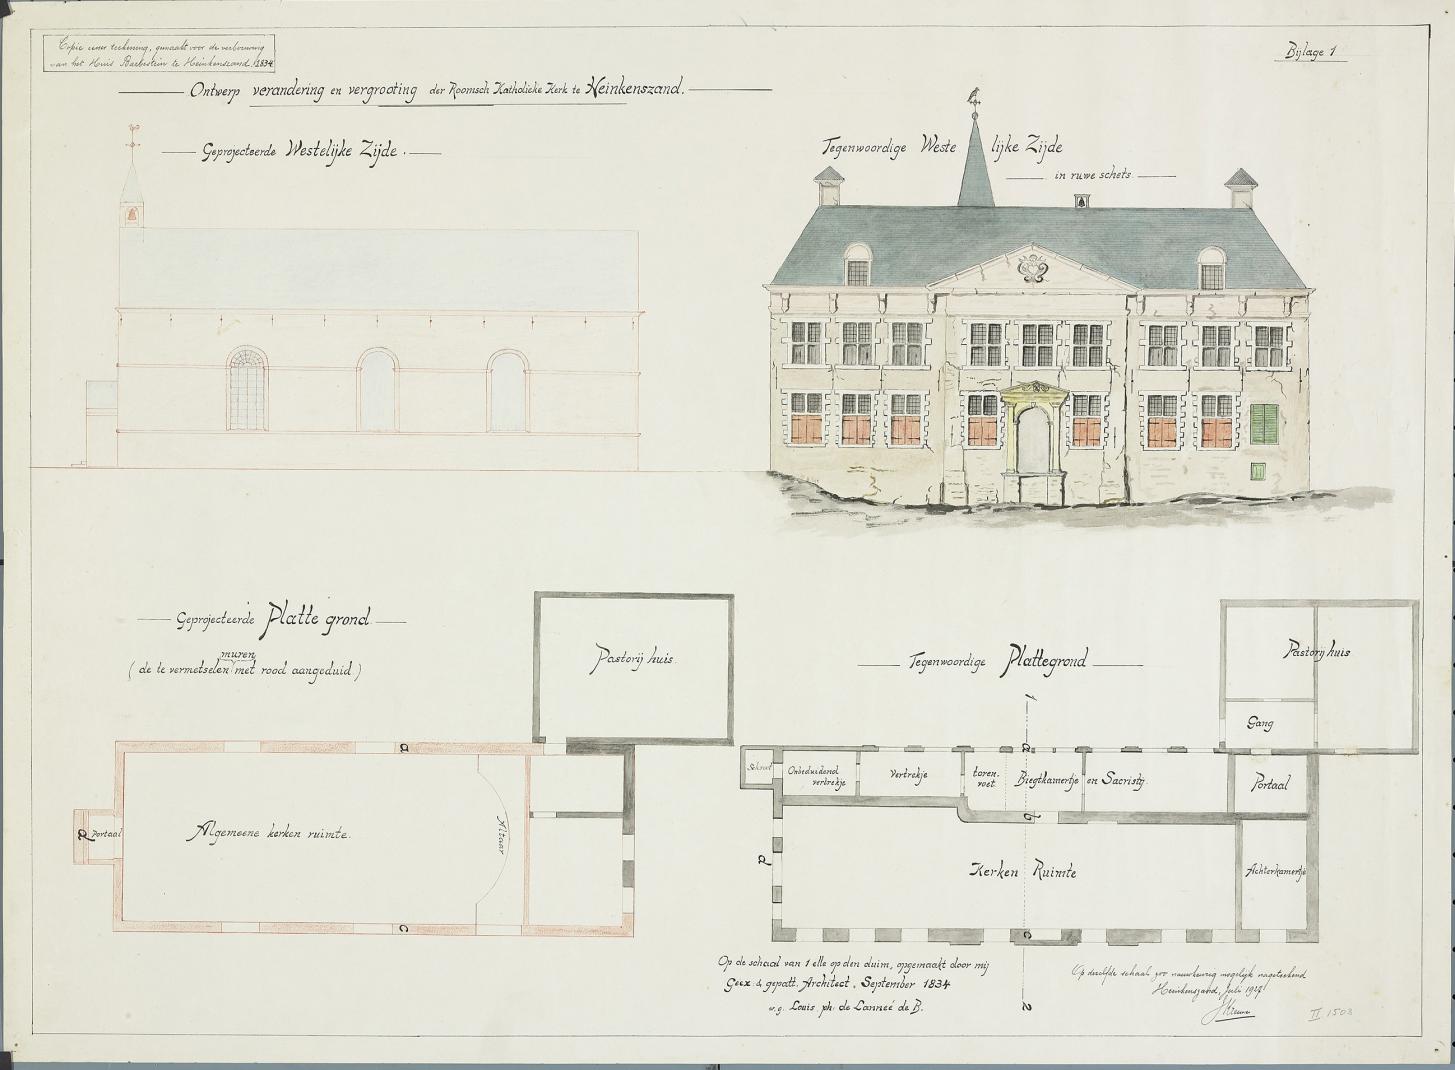 Copie eener teekening, gemaakt voor de verbouwing
van het Huis Barbestein te Heinkenszand. 1834
Bijlage 1
Ontwerp verandering en vergrooting der Roomsch Katholieke Kerk te Heinkenszand.
Geprojecteerde Westelijke Zijde.
Tegenwoordige Westelijke Zijde
in ruwe schets.
Geprojecteerde Platte grond.
muren
(de te vermetselen met rood aangeduid)
Pastorij huis.
a
Portaal
d
Algemeene kerken ruimte.
Altaar
c
Tegenwoordige Plattegrond
Pastorij huis
Gang
1
a
Onbeduidend
vertrekje
Vertrekje
toren.
voet.
Biegtkamertje en Sacristij
Portaal
b
d
Kerken Ruimte
Achterkamertje
c
2
Op de schaal van 1 elle op den duim, opgemaakt door mij
Geëx. & gepatt. Architect, September 1834
w.g. Louis ph: de Lanneé de B.
Op dezelfde schaal zoo nauwkeurig mogelijk nageteekend
Heinkenszand, Juli 1927
II 1503